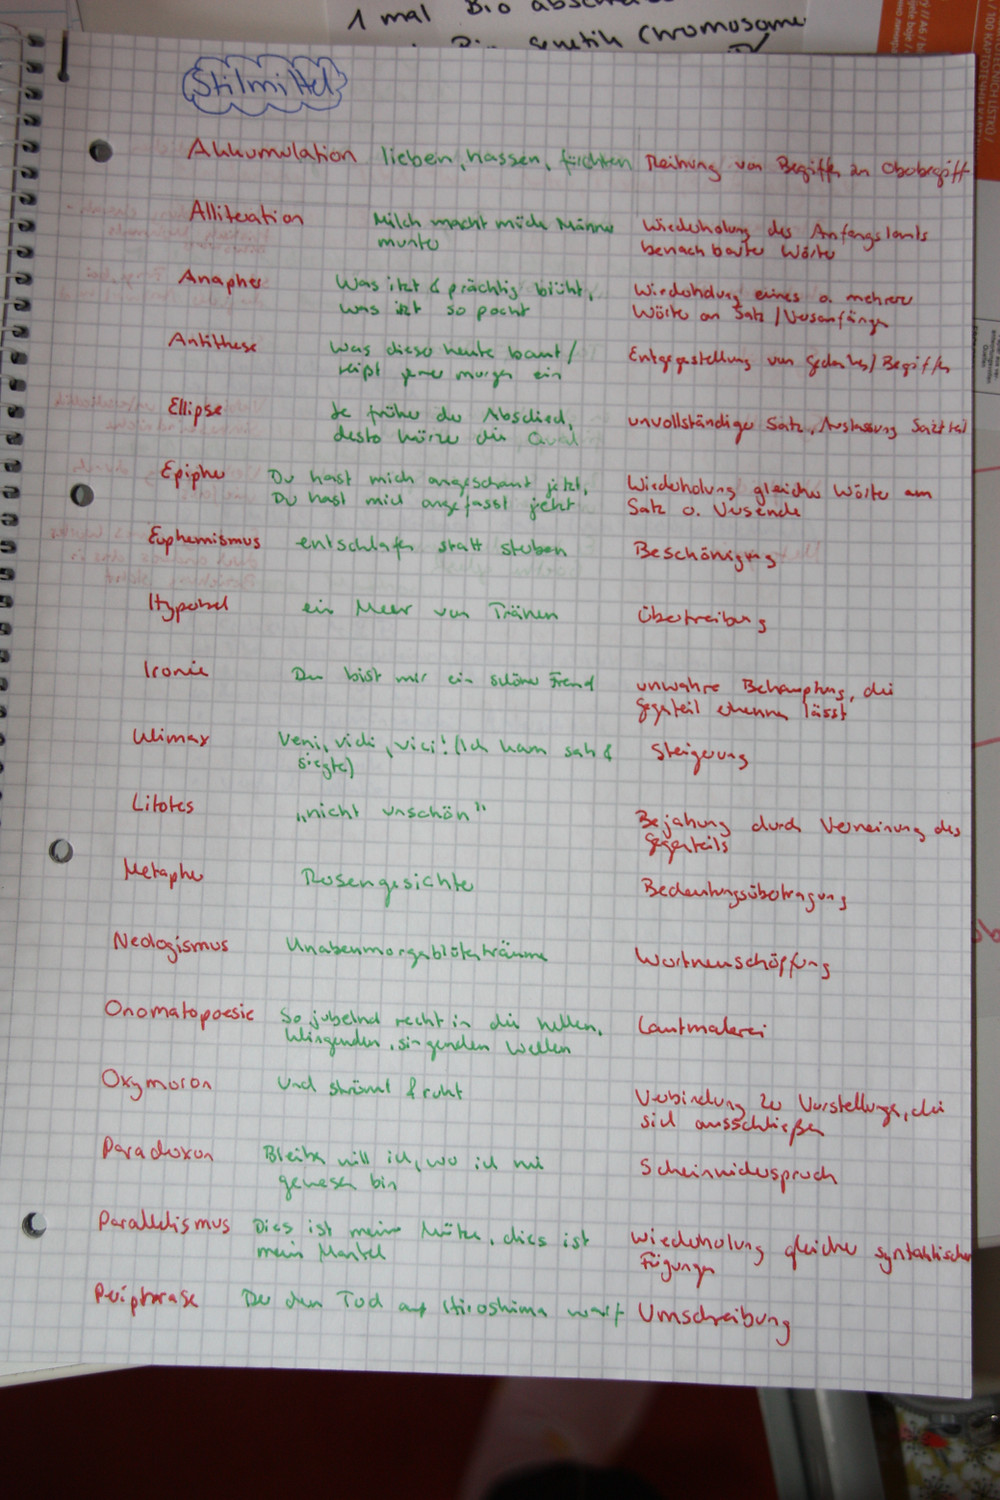 1 mal Bio
Genetik Chromosome
Stilmittel
Akkumulation lieben, hassen, fürchten Reihung von Begriffen zu Oberbegriff
Alliteration Milch macht müde Männer Wiederholung des Anfangslauts
munter benachbarter Wörter
Anapher Was itzt & prächtig blüht, Wiederholung eines o. mehrerer
was itzt so pocht Wörter an Satz/Versanfänge
Antithese Was dieser heute baut/ Entgegenstellung von Gedanken/Begriffen
reißt jener morgen ein
Ellipse Je früher der Abschied, unvollständiger Satz, Auslassung Satzteil
desto kürzer die Qual
Epipher Du hast mich angeschaut jetzt, Wiederholung gleicher Wörter am
Du hast mich angefasst jetzt Satz o. Versende
Euphemismus entschlafen statt sterben Beschönigung
Hyperbel ein Meer von Tränen Übertreibung
Ironie Du bist mir ein schöner Freund unwahre Behauptung, die
Gegenteil erkennen lässt
Klimax Veni, vidi, vici! (Ich kam sah & Steigerung
siegte)
Litotes „nicht unschön" Bejahung durch Verneinung des
Gegenteils
Metapher Rosengesichter Bedeutungsübertragung
Neologismus Knabenmorgenblütenträume Wortneuschöpfung
Onomatopoesie So jubelnd recht in die hellen, Lautmalerei
klingenden, singenden Wellen
Oxymoron Und strömt & ruht Verbindung 2er Vorstellungen, die
sich ausschließen
Paradoxon Bleiben will ich, wo ich nie Scheinwiderspruch
gewesen bin
Parallelismus Dies ist meine Mütze, dies ist Wiederholung gleicher syntaktischer
mein Mantel Fügungen
Periphrase Der den Tod auf Hiroshima warf Umschreibung